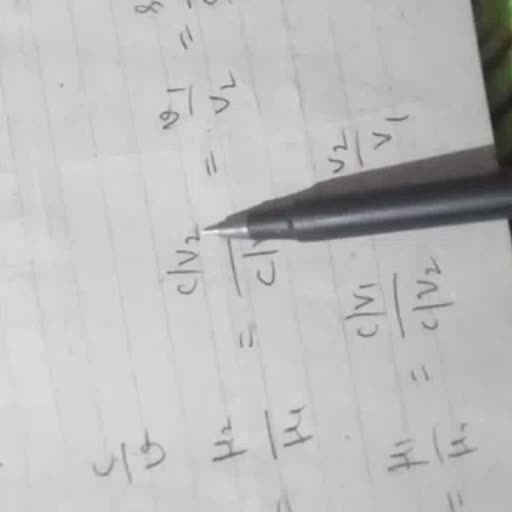 c/v
μ2/μ1 = c/v2 / c/v = v1/v2 =
= μ1/μ2 = c/v1 / c/v2 v2/v1